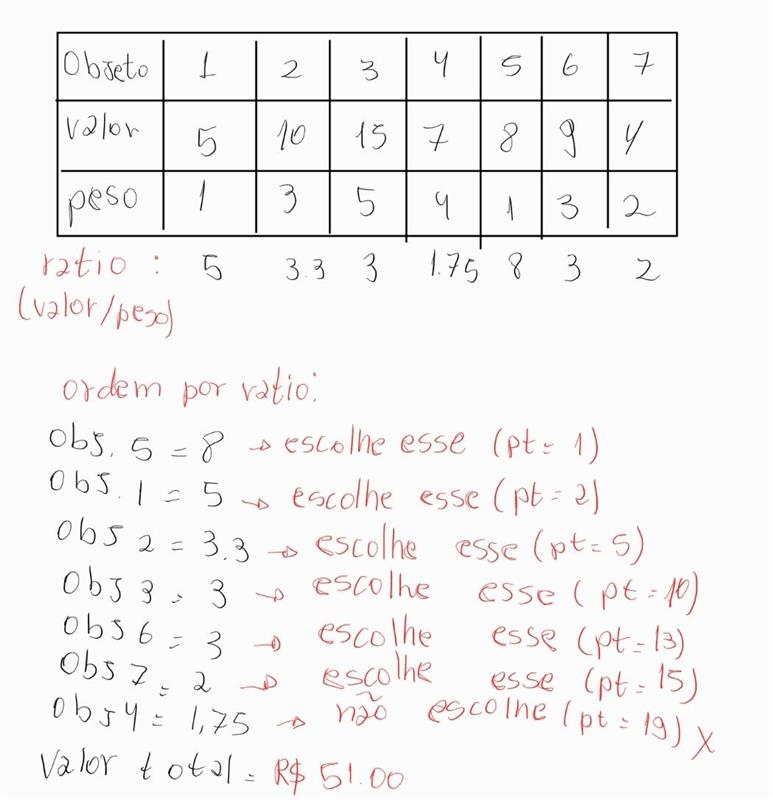 Objeto 1 2 3 4 5 6 7
valor 5 10 15 7 8 9 4
peso 1 3 5 4 1 3 2
ratio : 5 3.3 3 1.75 8 3 2
(valor/peso)
ordem por ratio:
obj. 5 = 8 → escolhe esse (pt = 1)
obj. 1 = 5 → escolhe esse (pt = 2)
obj 2 = 3.3 → escolhe esse (pt = 5)
obj 3 = 3 → escolhe esse (pt = 10)
obj 6 = 3 → escolhe esse (pt = 13)
obj 7 = 2 → escolhe esse (pt = 15)
obj 4 = 1,75 → não escolhe (pt = 19) X
Valor total = R$ 51.00